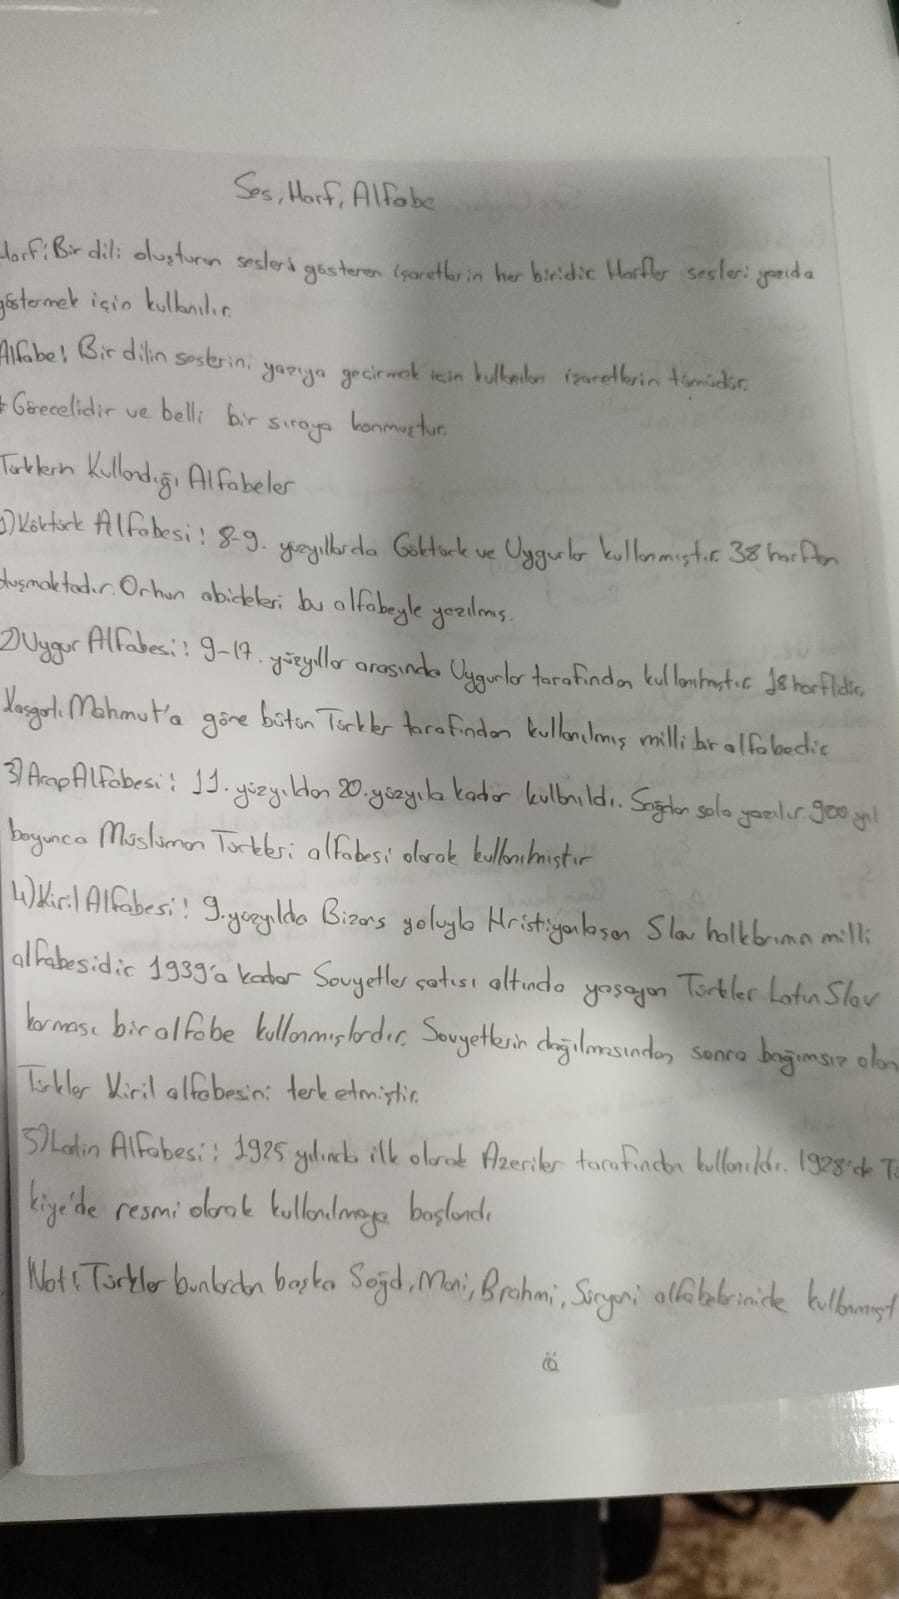 Ses, Harf, Alfabe
Harf: Bir dili oluşturan sesleri gösteren işaretlerin her biridir. Harfler sesleri yazıda
göstermek için kullanılır.
Alfabe: Bir dilin seslerini yazıya geçirmek için kullanılan işaretlerin tümüdür.
* Görecelidir ve belli bir sıraya konmuştur.
Türklerin Kullandığı Alfabeler
1) Köktürk Alfabesi: 8-9. yüzyıllarda Göktürk ve Uygurlar kullanmıştır. 38 harften
oluşmaktadır. Orhun abideleri bu alfabeyle yazılmış.
2) Uygur Alfabesi: 9-17. yüzyıllar arasında Uygurlar tarafından kullanılmıştır. 18 harflidir.
Kaşgarlı Mahmut'a göre bütün Türkler tarafından kullanılmış milli bir alfabedir
3) Arap Alfabesi: 11. yüzyıldan 20. yüzyıla kadar kullanıldı. Sağdan sola yazılır. 900 yıl
boyunca Müslüman Türkleri alfabesi olarak kullanılmıştır
4) Kiril Alfabesi: 9. yüzyılda Bizans yoluyla Hristiyanlaşan Slav halklarının milli
alfabesidir. 1939'a kadar Sovyetler çatısı altında yaşayan Türkler Latin Slav
karması bir alfabe kullanmışlardır. Sovyetlerin dağılmasından sonra bağımsız olan
Türkler Kiril alfabesini terk etmiştir.
5) Latin Alfabesi: 1925 yılında ilk olarak Azeriler tarafından kullanıldı. 1928'de Tü
kiye'de resmi olarak kullanılmaya başlandı
Not: Türkler bunlardan başka Soğd, Mani, Brahmi, Süryani alfabelerinide kullanmışt